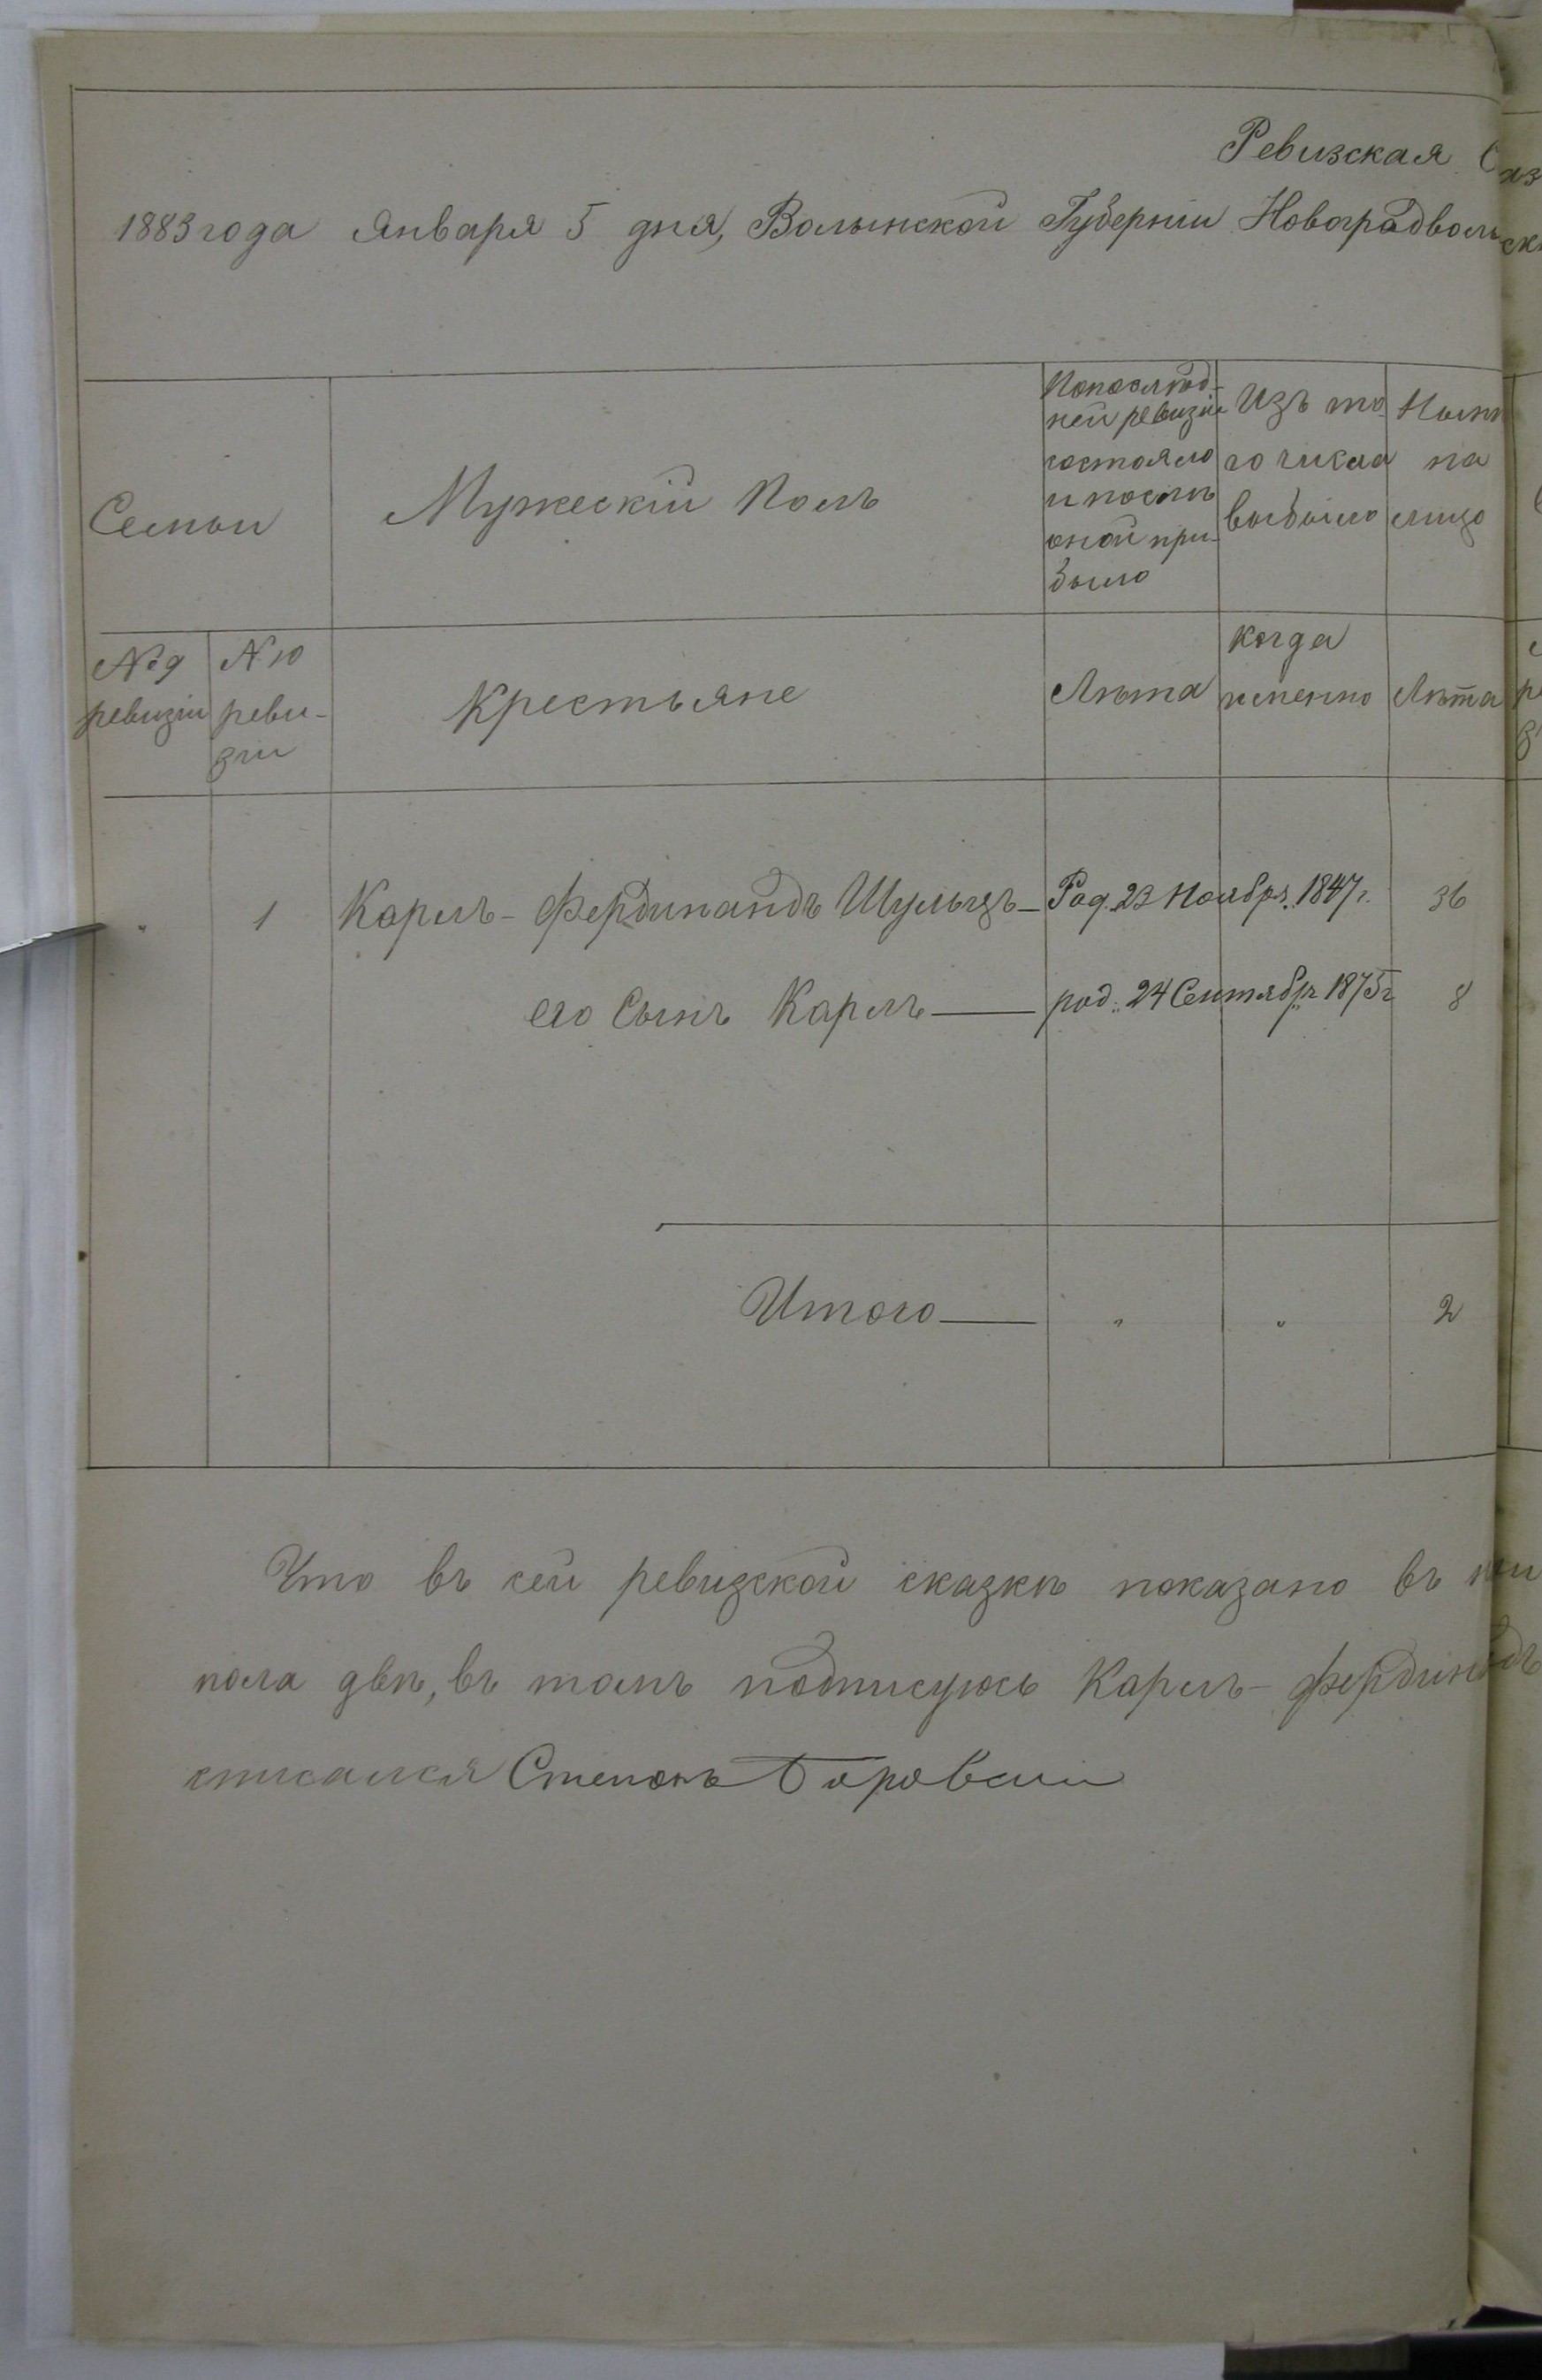 Ревизская Сказ
1883 года Января 5 дня, Волынской Губерніи Новоградволынск
Семьи
Мужескій Полъ
По послѣд-
ней ревизіи
состояло
и послѣ
оной при-
было
Изъ то
го числа
выбыло
Нынѣ
на
лицо
№ 9
ревизіи
№ 10
реви-
зіи
Крестьяне
Лѣта
когда
именно
Лѣта
" 1 Карлъ-Фердинандъ Шульцъ — Род. 23 Ноябр. 1847 г. 36
его Сынъ Карлъ — род. 24 Сентябр. 1875 г 8
Итого — " " 2
Что въ сей ревизской сказкѣ показано въ
пола двѣ, въ томъ подписуюсь Карлъ-Фердинандъ
списался Степанъ Боровский